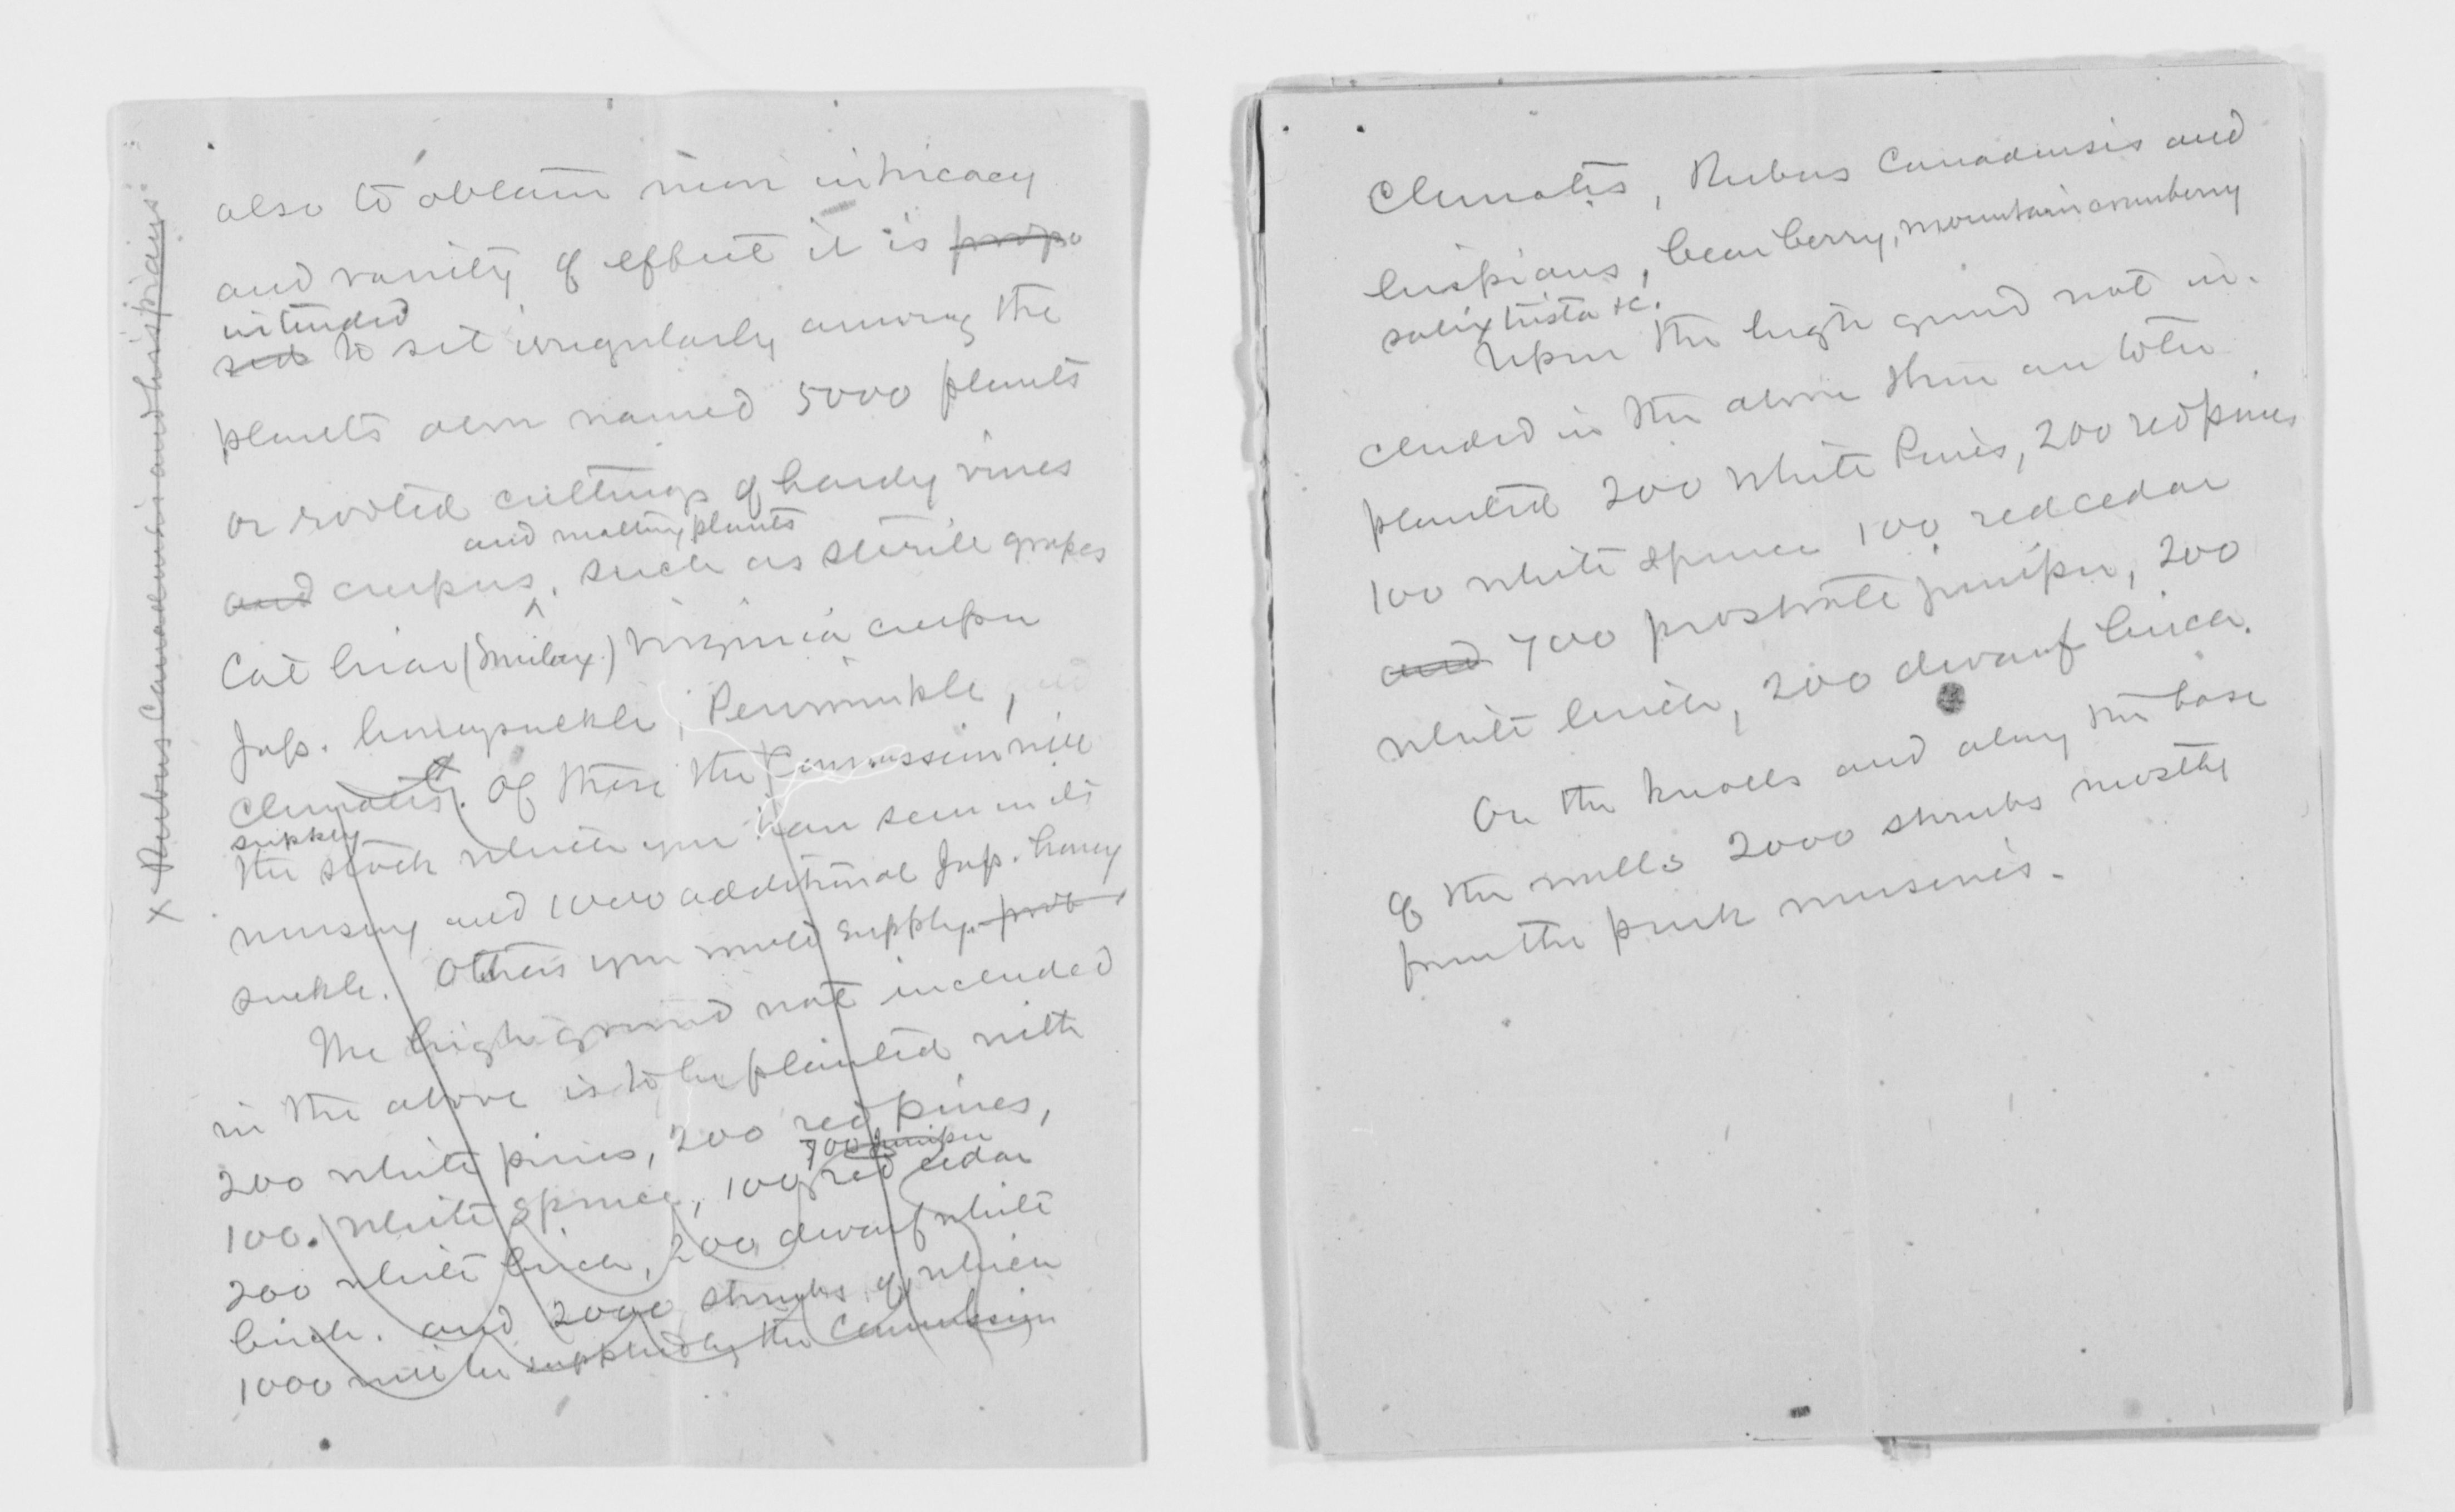 also to obtain more intricacy
and variety of effect it is propo
intended
sed to set irregularly among the
plants above named 5000 plants
or rooted cuttings of hardy vines
and matting plants
and creepers, such as sterile grapes
Cat briar (Smilax) Virginia creeper
Jap. honeysuckle, Perriwinkle,
Clematis. Of these the Commission will
supply
the stock which you have seen in its
nursery and 1000 additional Jap. honey
suckle. Others you would supply.
The high ground not included
in the above is to be planted with
200 white pines, 200 red pines,
700 juniper
100. white spruce, 100 red cedar
200 white birch, 200 dwarf white
birch. and 2000 shrubs of which
1000 will be supplied by the Commission
x Rubus Canadensis and hispidus
Clematis, Rubus Canadensis and
hispidus, bear berry, mountain cranberry
salix tristis &c.
Upon the high ground not in-
cluded in the above there are to be
planted 200 White Pines, 200 red pines
100 white spruce 100 red cedar
and 700 prostrate juniper, 200
white birch, 200 dwarf birch.
On the knolls and along the base
of the walls 2000 shrubs mostly
from the park nurseries.